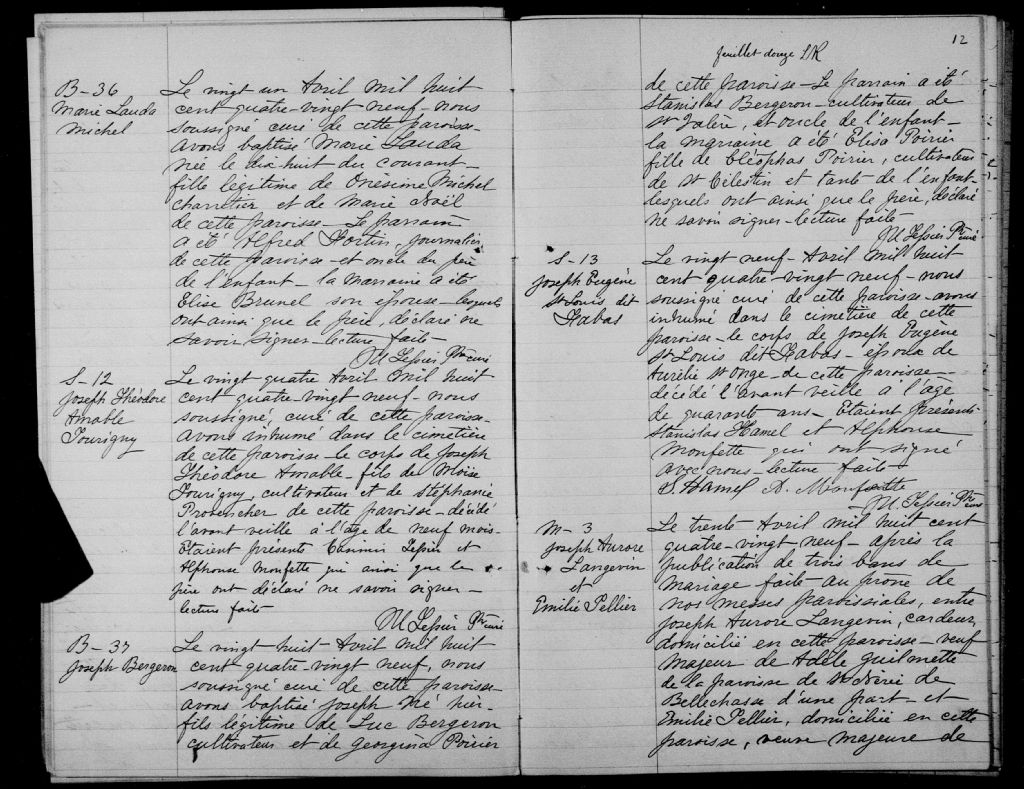 B-36
Marie Lauda
Michel
Le vingt un Avril mil huit
cent quatre-vingt neuf-nous
soussigné curé de cette paroisse-
avons baptisé Marie Lauda
née le dix-huit du courant-
fille légitime de Onésime Michel
charretier et de Marie Noël
de cette paroisse-Le parrain
a été Alfred Fortin, journalier
de cette paroisse-et oncle du père
de l'enfant-la marraine a été
Elise Brunel son épouse-lesquels
ont ainsi que le père, déclaré ne
savoir signer-lecture faite-
M Lessier Ptre curé
S-12
Joseph Théodore
Amable
Tourigny
Le vingt quatre Avril mil huit
cent quatre-vingt neuf-nous
soussigné, curé de cette paroisse-
avons inhumé dans le cimetière
de cette paroisse-le corps de Joseph
Théodore Amable-fils de Moïse
Tourigny, cultivateur et de Stéphanie
Provencher de cette paroisse-décédé
l'avant veille à l'age de neuf mois-
Etaient présents Lessier et
Alphonse Monfette qui ainsi que le
père ont déclaré ne savoir signer-
lecture faite
M Lessier Ptre curé
B-37
Joseph Bergeron
Le vingt huit Avril mil huit
cent quatre-vingt neuf, nous
soussigné curé de cette paroisse
avons baptisé Joseph né hier-
fils légitime de Luc Bergeron
cultivateur et de Georgina Poirier
12
feuillet douze
de cette paroisse-Le parrain a été
Stanislas Bergeron-cultivateur de
St Valère, et oncle de l'enfant-
la marraine a été Elisa Poirier
fille de Cléophas Poirier, cultivateur
de St Célestin et tante de l'enfant-
lesquels ont ainsi que le père, déclaré
ne savoir signer-lecture faite-
M Lessier Ptre curé
S-13
Joseph Eugène
St Louis dit
Habas
Le vingt neuf-Avril mill huit
cent quatre-vingt neuf-nous
soussigné curé de cette paroisse-avons
inhumé dans le cimetière de cette
paroisse-le corps de Joseph Eugène
St Louis dit Habas-époux de
Aurélie St Onge-de cette paroisse-
décédé l'avant veille à l'age
de quarante ans-Etaient présents
Stanislas Hamel et Alphonse
Monfette qui ont signé
avec nous-lecture faite-
S. Hamel A. Monfette
M. Lessier Ptre curé
M-3
Joseph Aurore
Langevin
et
Emilie Pellier
Le trente Avril mil huit cent
quatre-vingt neuf-après la
publication de trois bans de
mariage faite-au prone de
nos messes paroissiales, entre
Joseph Aurore Langevin, cardeur,
domicilié en cette paroisse-veuf
majeur de Adèle Guilmette
de la paroisse de St Nérée de
Bellechasse d'une part-et
Emilie Pellier, domiciliée en cette
paroisse, veuve majeure de